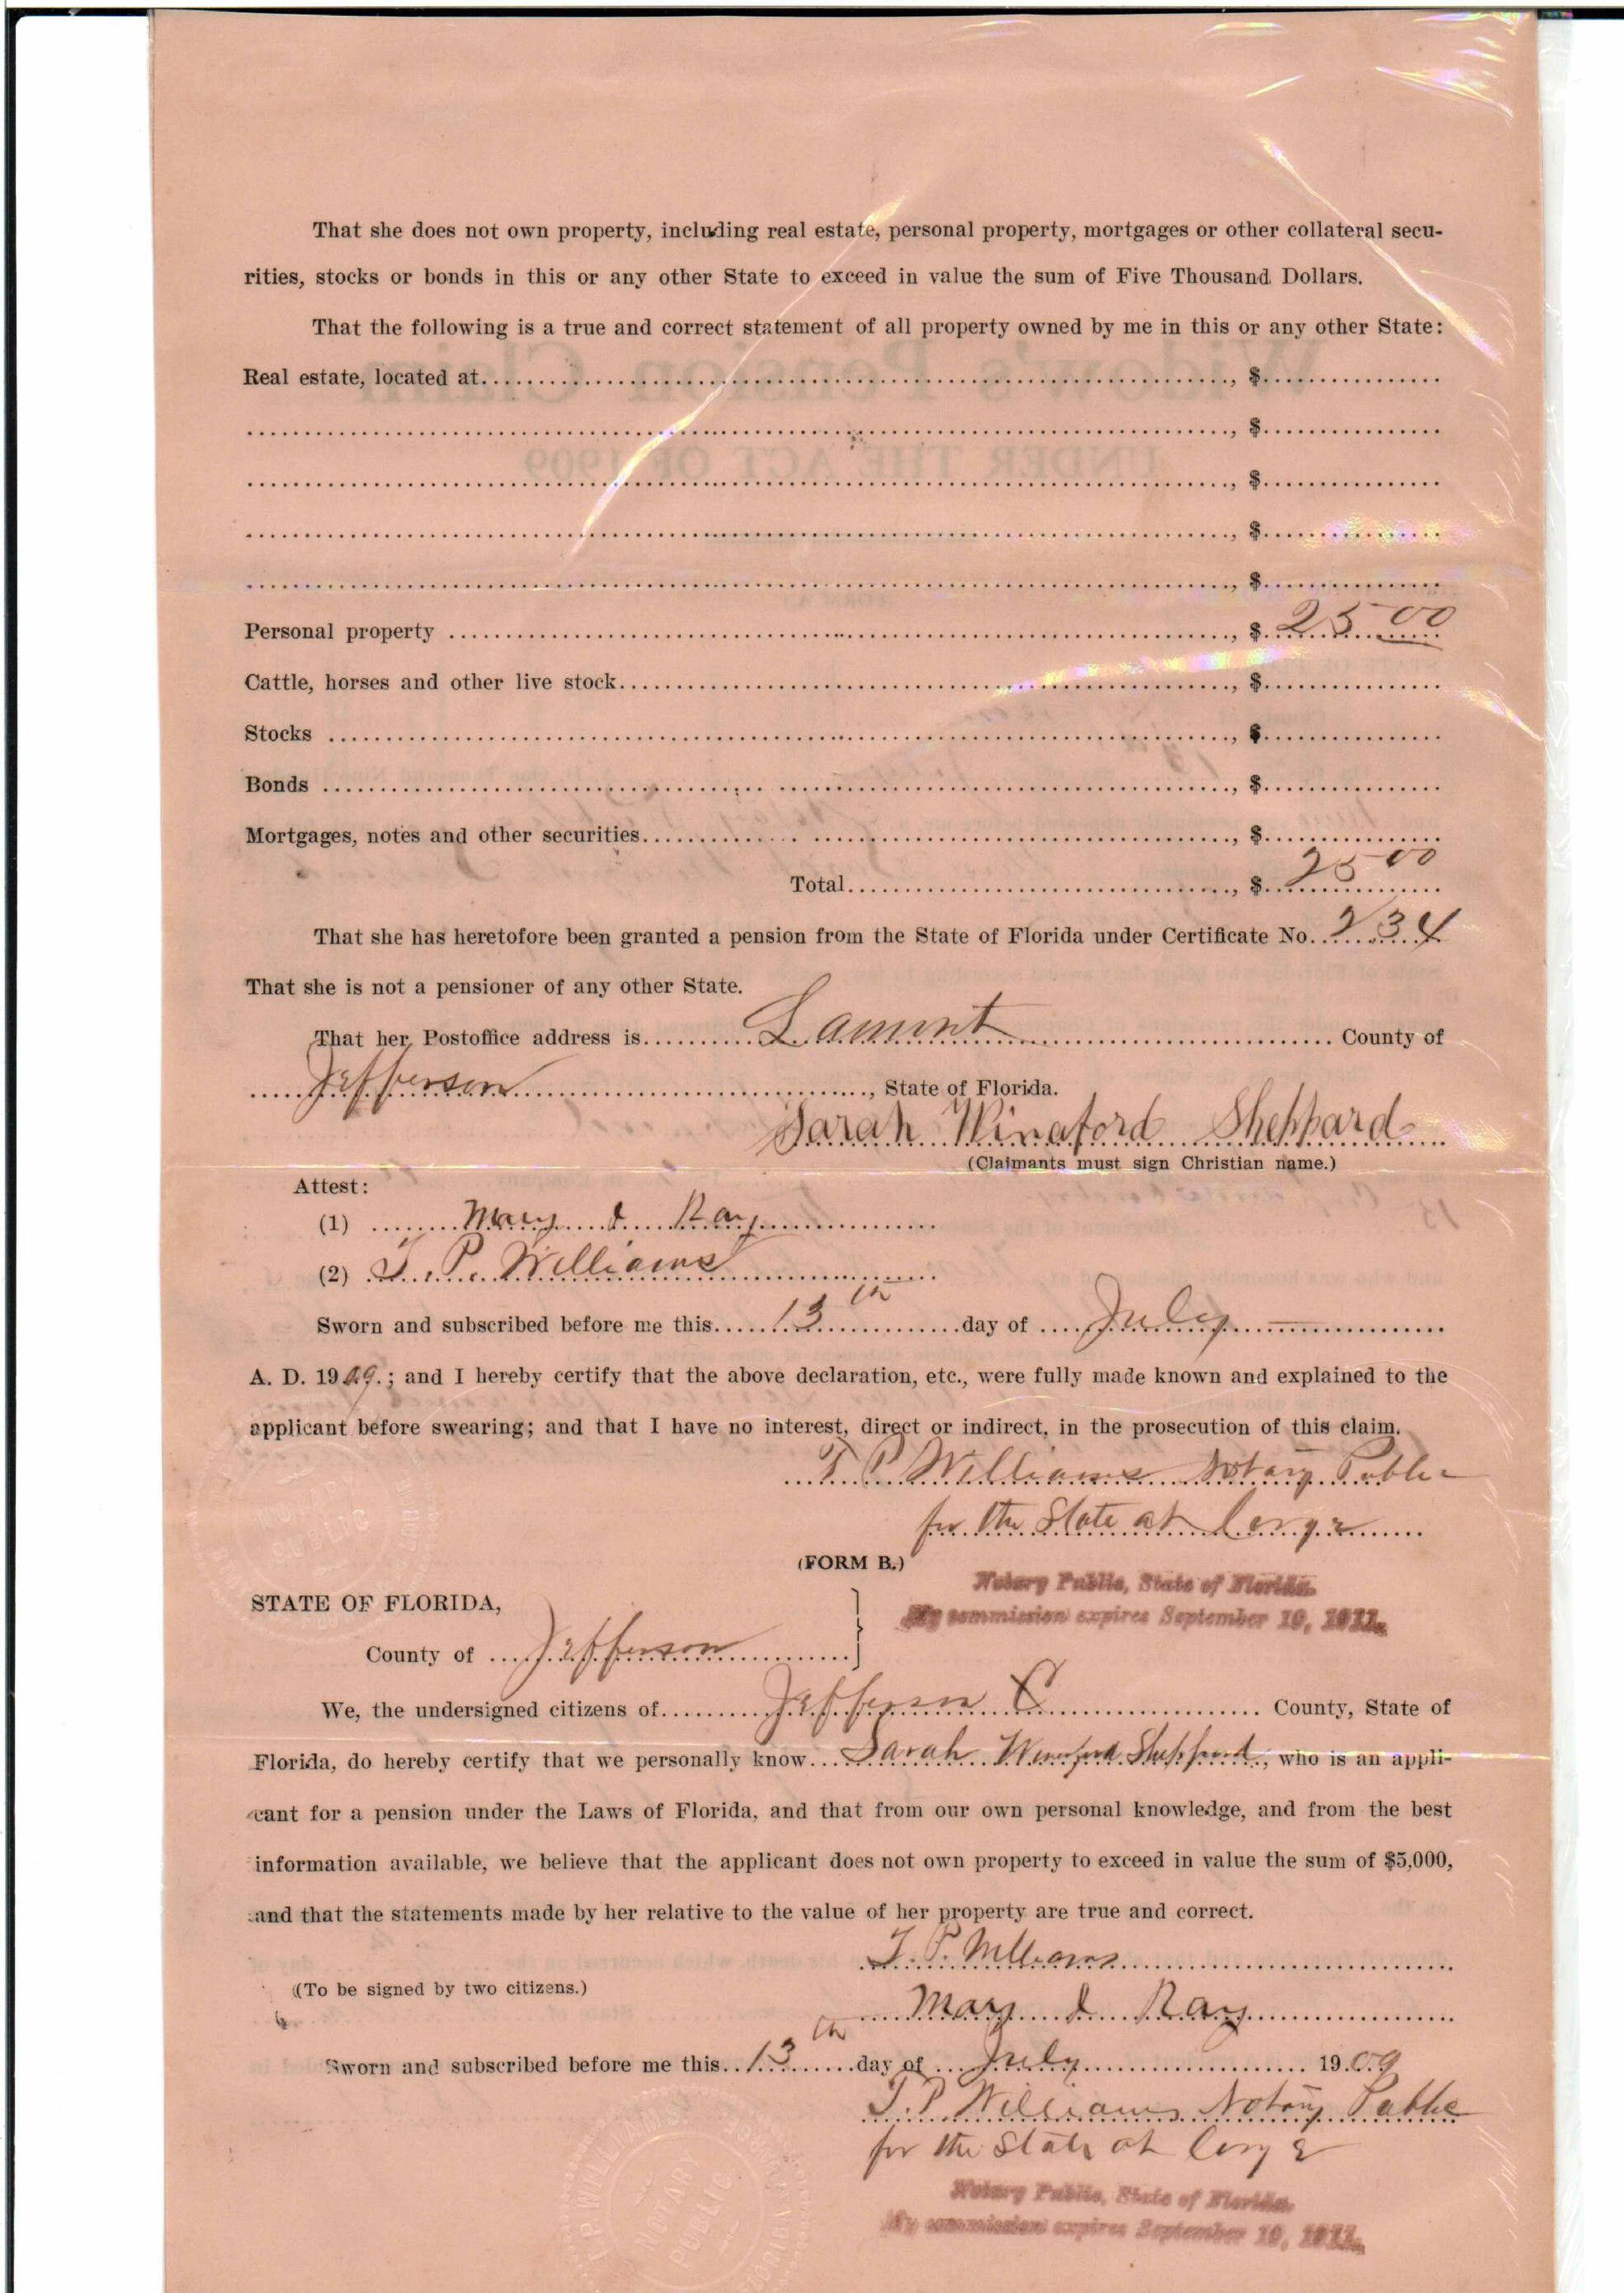 That she does not own property, including real estate, personal property, mortgages or other collateral secu-
rities, stocks or bonds in this or any other State to exceed in value the sum of Five Thousand Dollars.
That the following is a true and correct statement of all property owned by me in this or any other State:
Real estate, located at......, $......
......, $......
......, $......
......, $......
......, $......
Personal property ......, $ 25 00
Cattle, horses and other live stock......, $......
Stocks ......, $......
Bonds ......, $......
Mortgages, notes and other securities......, $......
Total......, $ 25 00
That she has heretofore been granted a pension from the State of Florida under Certificate No. 234
That she is not a pensioner of any other State.
That her Postoffice address is...... Lamont ...... County of
Jefferson ......, State of Florida.
Sarah Winaford Sheppard
(Claimants must sign Christian name.)
Attest:
(1) Mary J. Ray
(2) T. P. Williams
Sworn and subscribed before me this 13th day of July
A. D. 1909.; and I hereby certify that the above declaration, etc., were fully made known and explained to the
applicant before swearing; and that I have no interest, direct or indirect, in the prosecution of this claim.
T P Williams Notary Public
for the State at Large
(FORM B.)
Notary Public, State of Florida.
My commission expires September 10, 1911.
STATE OF FLORIDA,
County of Jefferson
We, the undersigned citizens of Jefferson C County, State of
Florida, do hereby certify that we personally know Sarah Winaford Sheppard, who is an appli-
cant for a pension under the Laws of Florida, and that from our own personal knowledge, and from the best
information available, we believe that the applicant does not own property to exceed in value the sum of $5,000,
and that the statements made by her relative to the value of her property are true and correct.
T. P. Williams
(To be signed by two citizens.)
Mary J. Ray
Sworn and subscribed before me this 13th day of July 1909
T. P Williams Notary Public
for the State at Large
Notary Public, State of Florida.
My commission expires September 10, 1911.
P WILLIAMS
NOTARY
PUBLIC
FLORIDA